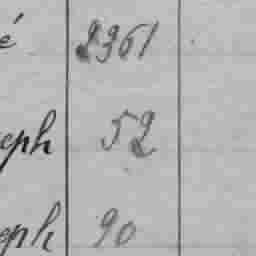 é 2961
eph 52
eph 90